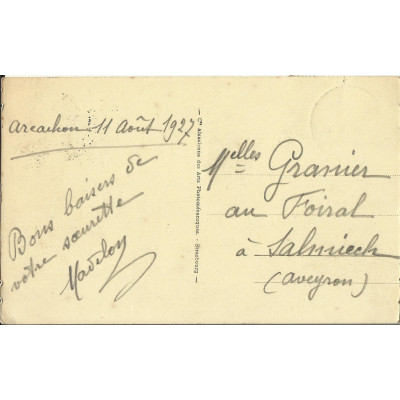 Arcachon 11 Août 1927
Bons baisers de
votre sœurette
Madelon
Cie Alsacienne des Arts Photomécaniques. - Strasbourg
Melles Granier
au Foiral
à Salmiech
(Aveyron)